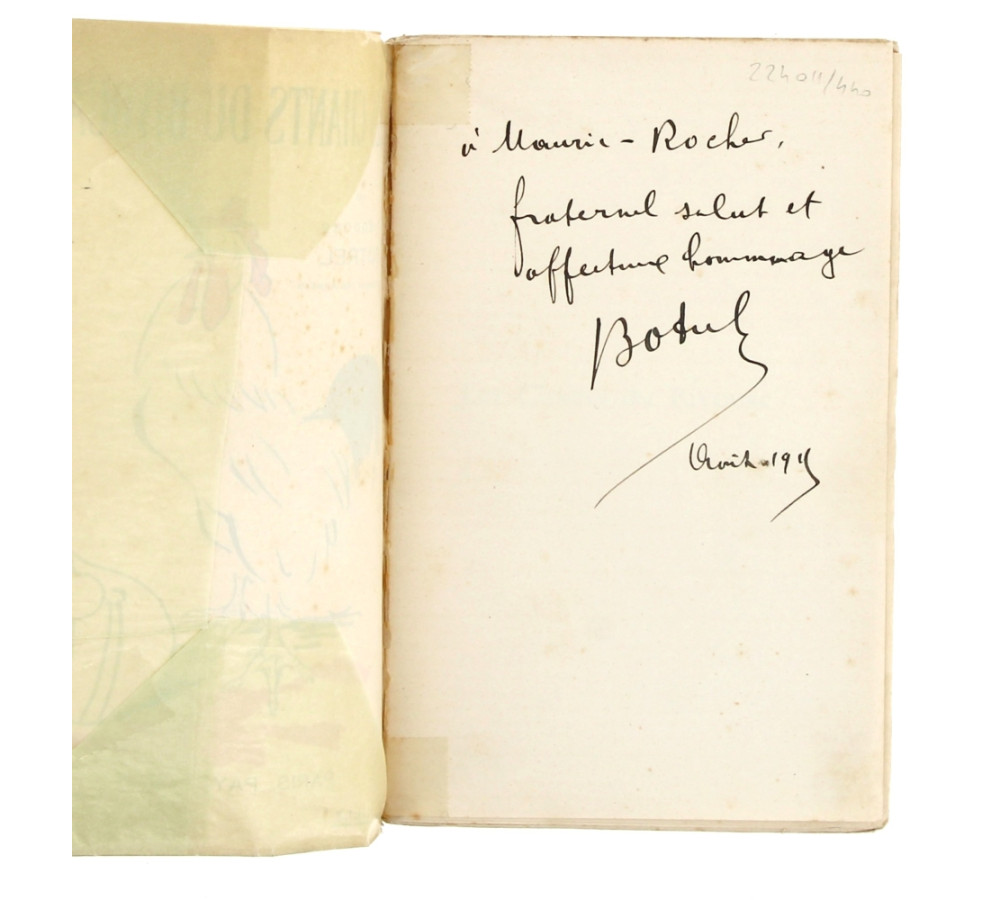 224011/440
à Maurice - Rocher,
fraternel salut et
affectueux hommage
Botrel
Août.1915
CHANTS DU B